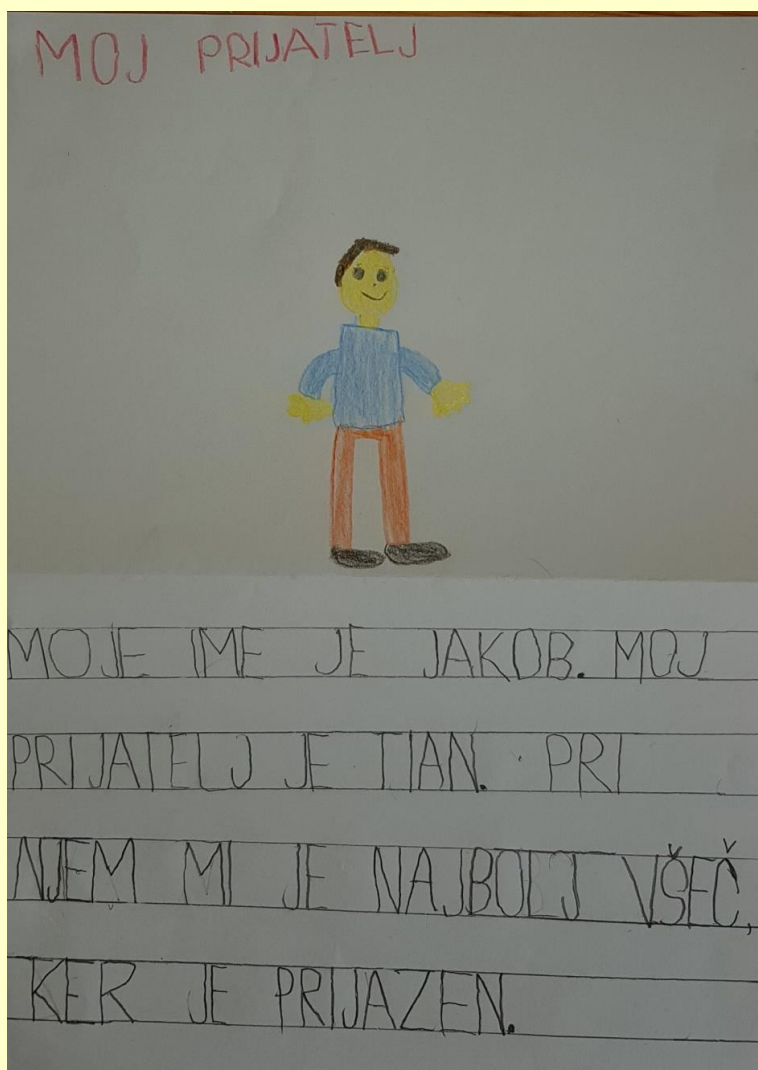 MOJ PRIJATELJ
MOJE IME JE JAKOB. MOJ
PRIJATELJ JE TIAN. PRI
NJEM MI JE NAJBOLJ VŠEČ,
KER JE PRIJAZEN.